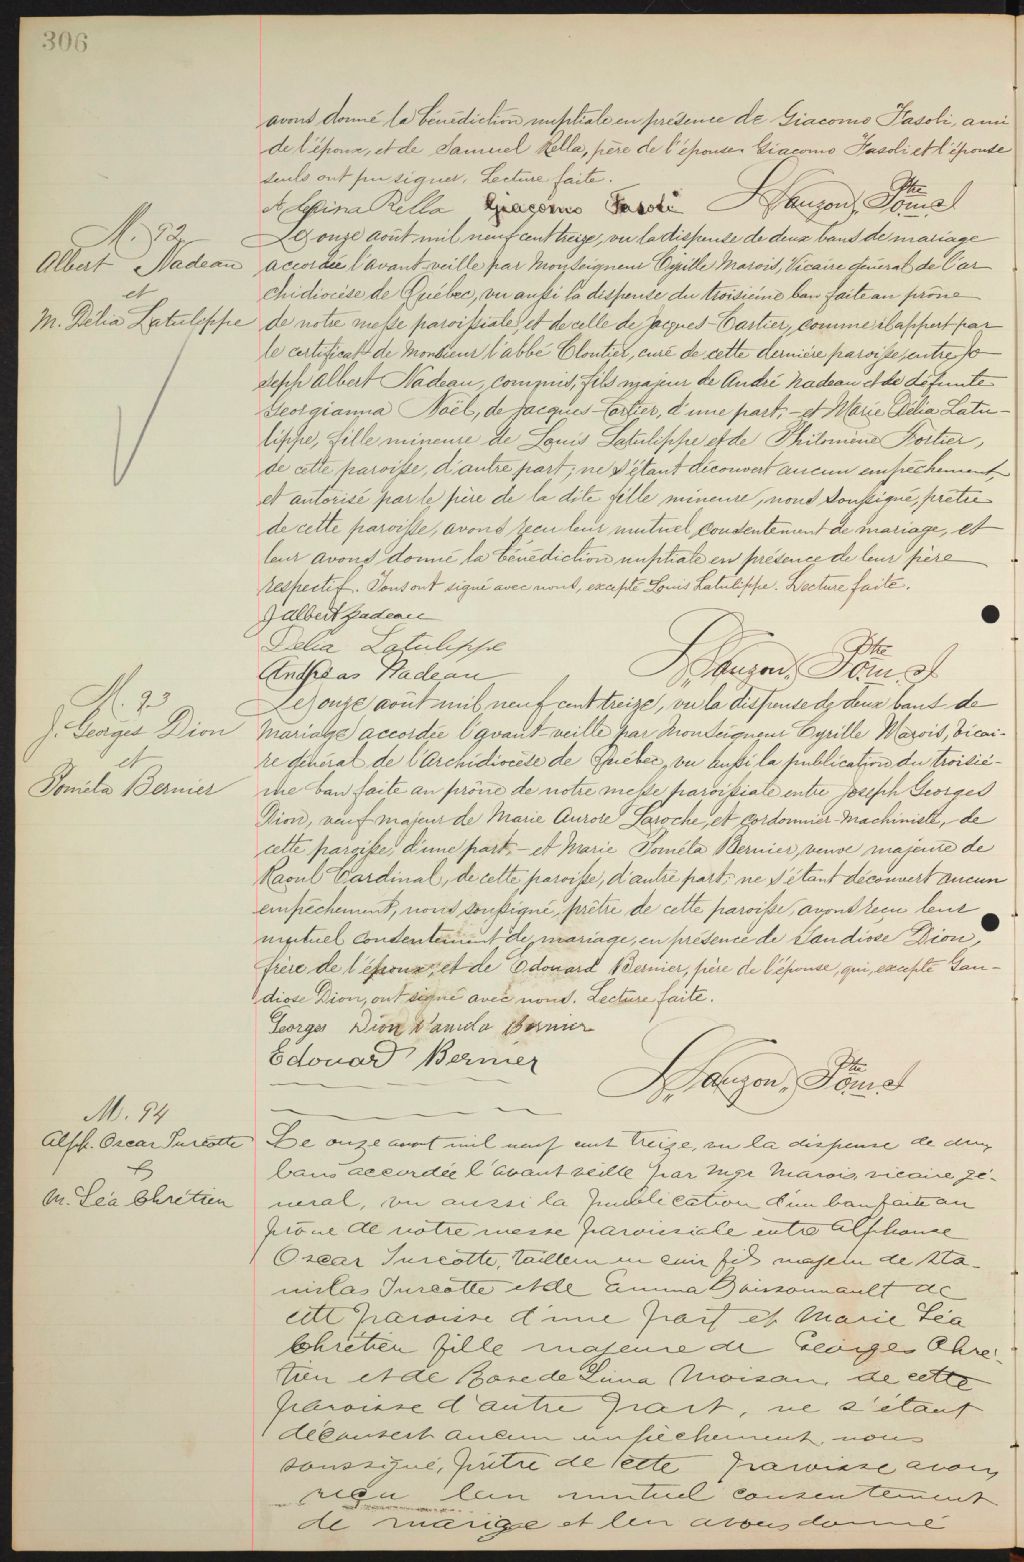 306
avons donné la bénédiction nuptiale en présence de Giacomo Fasoli, ami
de l'époux, et de Samuel Rella, père de l'épouse. Giacomo Fasoli et l'épouse
seuls ont pu signer. Lecture faite.
Rella Giacomo Fasoli Lauzon, Ptre
M. 92
Albert Nadeau
et
M. Délia Latulippe
Le onze août mil neuf cent treize, vu la dispense de deux bans de mariage
accordée l'avant-veille par Monseigneur Cyrille Marois, Vicaire général de l'ar
chidiocèse de Québec, vu aussi la dispense du troisième ban faite au prône
de notre messe paroissiale, et de celle de Jacques-Cartier, comme il appert par
le certificat de Monsieur l'abbé Cloutier, curé de cette dernière paroisse, entre Jo
seph Albert Nadeau, commis, fils majeur de André Nadeau et de défunte
Georgianna Noël, de Jacques-Cartier, d'une part, - et Marie Délia Latu-
lippe, fille mineure de Louis Latulippe et de Philomène Fortier,
de cette paroisse, d'autre part; ne s'étant découvert aucun empêchement,
et autorisé par le père de la dite fille mineure, nous soussigné, prêtre
de cette paroisse, avons reçu leur mutuel consentement de mariage, et
leur avons donné la bénédiction nuptiale en présence de leur père
respectif. Tous ont signé avec nous, excepté Louis Latulippe. Lecture faite.
J Albert Nadeau
Délia Latulippe
Andréas Nadeau Lauzon, Ptre
M. 93
J. Georges Dion
et
Pométa Bernier
Le onze août mil neuf cent treize, vu la dispense de deux bans de
mariage accordée l'avant veille par Monseigneur Cyrille Marois, Vicai-
re général de l'Archidiocèse de Québec, vu aussi la publication du troisiè-
me ban faite au prône de notre messe paroissiale entre Joseph Georges
Dion, veuf majeur de Marie Aurore Laroche, et cordonnier-machiniste, de
cette paroisse, d'une part, - et Marie Pométa Bernier, veuve majeure de
Raoul Cardinal, de cette paroisse, d'autre part; ne s'étant découvert aucun
empêchement, nous, soussigné, prêtre de cette paroisse, avons reçu leur
mutuel consentement de mariage, en présence de Gaudiose Dion,
frère de l'époux, et de Edouard Bernier, père de l'épouse, qui, excepté Gau-
diose Dion, ont signé avec nous. Lecture faite.
Georges Dion Bernier
Edouard Bernier
Lauzon, Ptre
M. 94
Alph. Oscar Turcotte
et
M. Léa Chrétien
Le onze aout mil neuf cent treize, vu la dispense de deux
bans accordée l'avant veille par Mgr Marois, vicaire gé-
néral, vu aussi la publication d'un ban faite au
prône de notre messe paroissiale entre Alphonse
Oscar Turcotte, tailleur en cuir fils majeur de Sta-
nislas Turcotte et de Emma Boissonnault de
cette paroisse d'une part et Marie Léa
Chrétien fille majeure de Georges Chré-
tien et de Rose de Lima Moisan, de cette
paroisse d'autre part, ne s'étant
découvert aucun empêchement nous
soussigné, prêtre de cette paroisse avons
reçu leur mutuel consentement
de mariage et leur avons donné